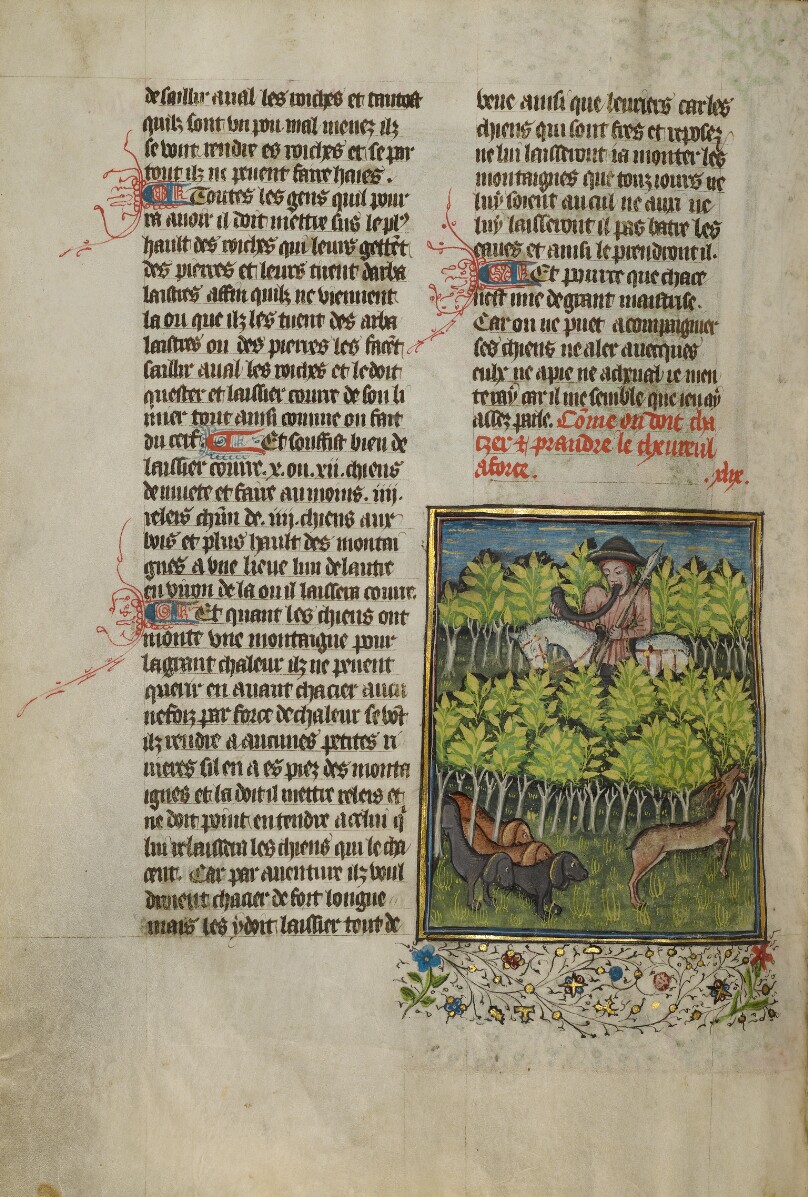 de saillir aual les roches et tantost
quilz sont vn pou mal menez ilz
se vont rendre es roches et se par
tout ilz ne peuent faire haies.
Toutes les gens quil pour
ra auoir il doit mettre sus le plꝰ
hault des roches qui leurs gettẽt
des pierres et leurs tirent darba
lastres affin quilz ne viennent
la ou que ilz les tuent des arba
lastres ou des pierres les facẽt
saillir aual les roches et le doit
quester et laissier courre de son li
mier tout ainsi comme on fait
du cerf. Et souffist bien de
laissier courre .x. ou .xii. chiens
de muete et faire au moins .iiii.
relers chũn de .iiii. chiens aux
bois et plus hault des montai
gnes a vne lieue lun de lautre
enuiron de la ou il laissera courre.
Et quant les chiens ont
monte vne montaigne pour
la grant chaleur ilz ne peuent
querir en auant chacier aucu
nefoiz par force de chaleur se võt
ilz rendre a aucunes petites ri
uieres sil en a es piez des monta
ignes et la doit il mettre relers et
ne doit point entendre a celui q̃
lui relaissera les chiens qui le cha
cent. Car par auenture ilz voul
droient chacier de fort longue
mais les y doit laissier tout de
veue ainsi que leuriers car les
chiens qui sont fres et reposez
ne lui laisseront ia monter les
montaignes que touz iours ne
luy soient au cul ne aux ne
luy laisseront il pas batre les
eaues et ainsi le prendront il.
Et pource que chace
nest mie de grant maistrise.
Car on ne puet acompaignier
ses chiens ne aler auecques
eulx ne a pie ne a cheual ie men
teray car il me semble que ien ay
assez parle. Cõme on doit cha
cier ⁊ prandre le cheureul
a force. .xlix.